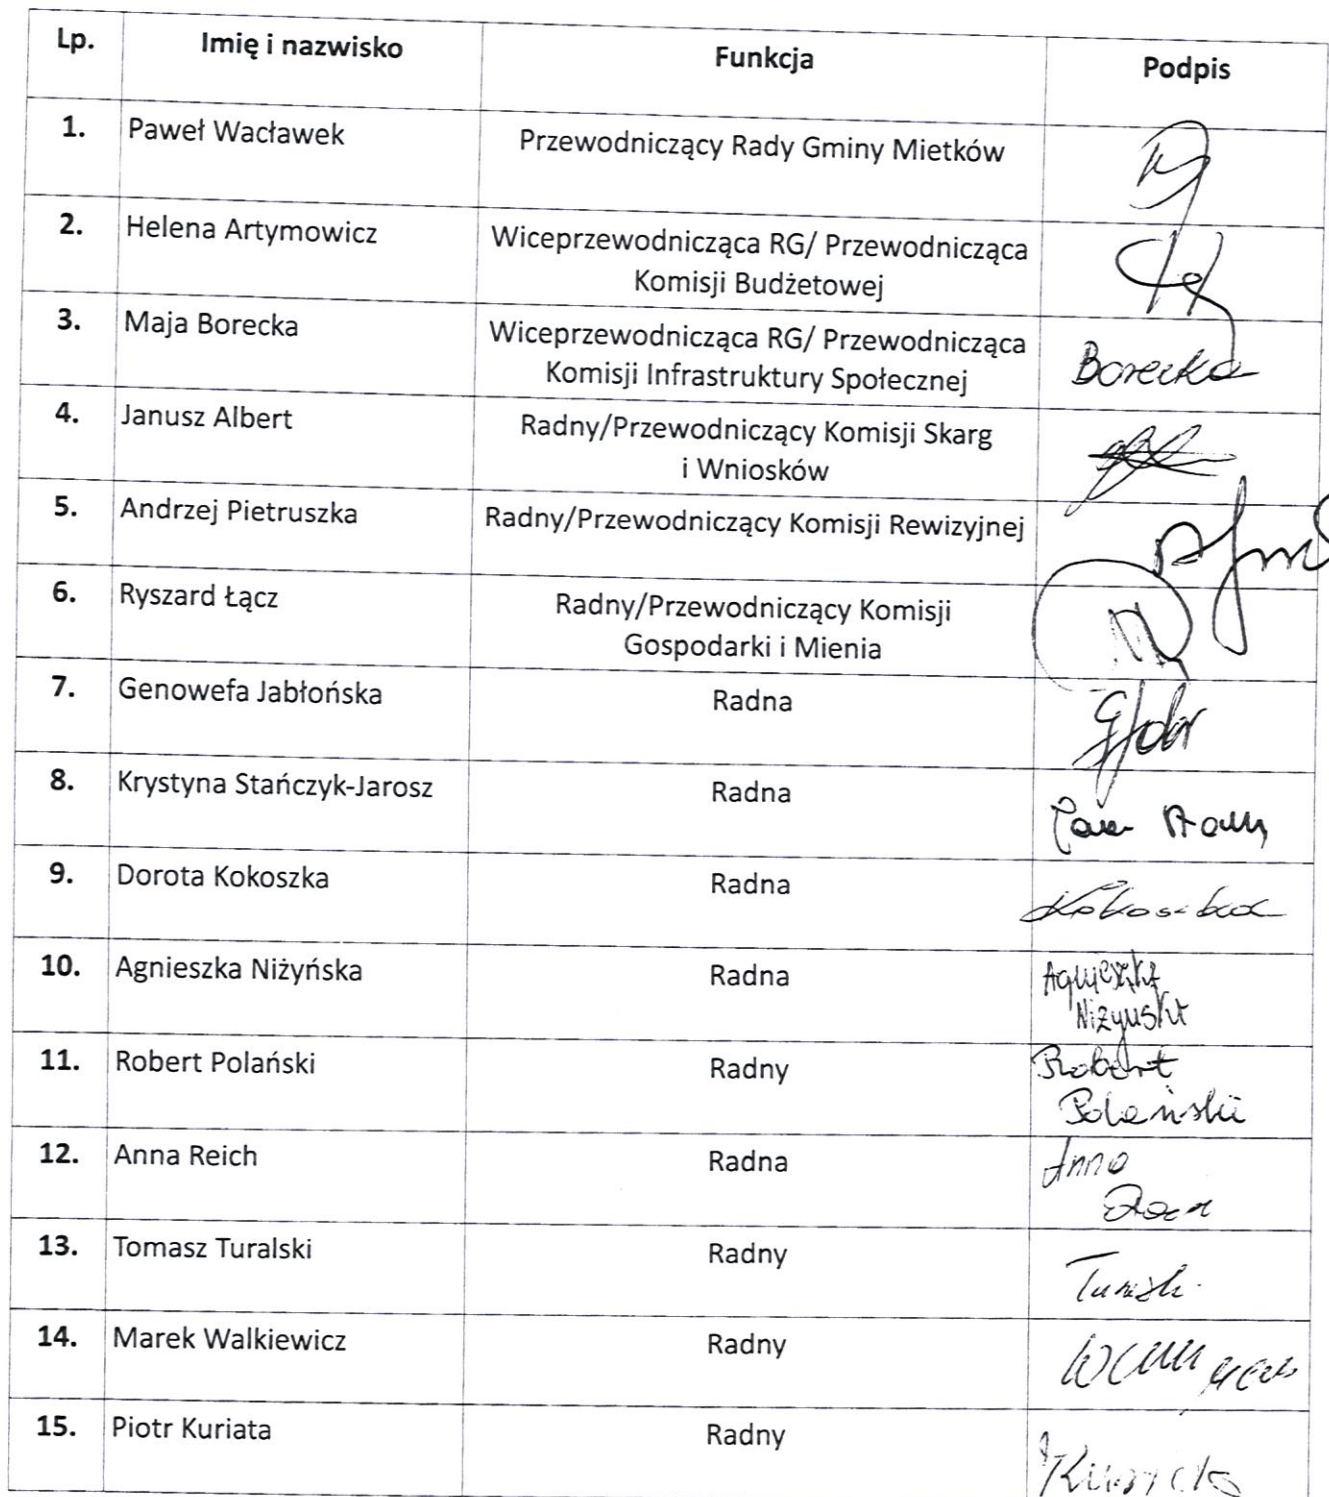 Lp. Imię i nazwisko Funkcja Podpis
1. Paweł Wacławek Przewodniczący Rady Gminy Mietków
2. Helena Artymowicz Wiceprzewodnicząca RG/ Przewodnicząca
Komisji Budżetowej
3. Maja Borecka Wiceprzewodnicząca RG/ Przewodnicząca
Komisji Infrastruktury Społecznej Borecka
4. Janusz Albert Radny/Przewodniczący Komisji Skarg
i Wniosków
5. Andrzej Pietruszka Radny/Przewodniczący Komisji Rewizyjnej
6. Ryszard Łącz Radny/Przewodniczący Komisji
Gospodarki i Mienia
7. Genowefa Jabłońska Radna
8. Krystyna Stańczyk-Jarosz Radna
9. Dorota Kokoszka Radna Kokoszka
10. Agnieszka Niżyńska Radna Agnieszka
Niżyńska
11. Robert Polański Radny Robert
Polański
12. Anna Reich Radna Anna
13. Tomasz Turalski Radny
14. Marek Walkiewicz Radny
15. Piotr Kuriata Radny